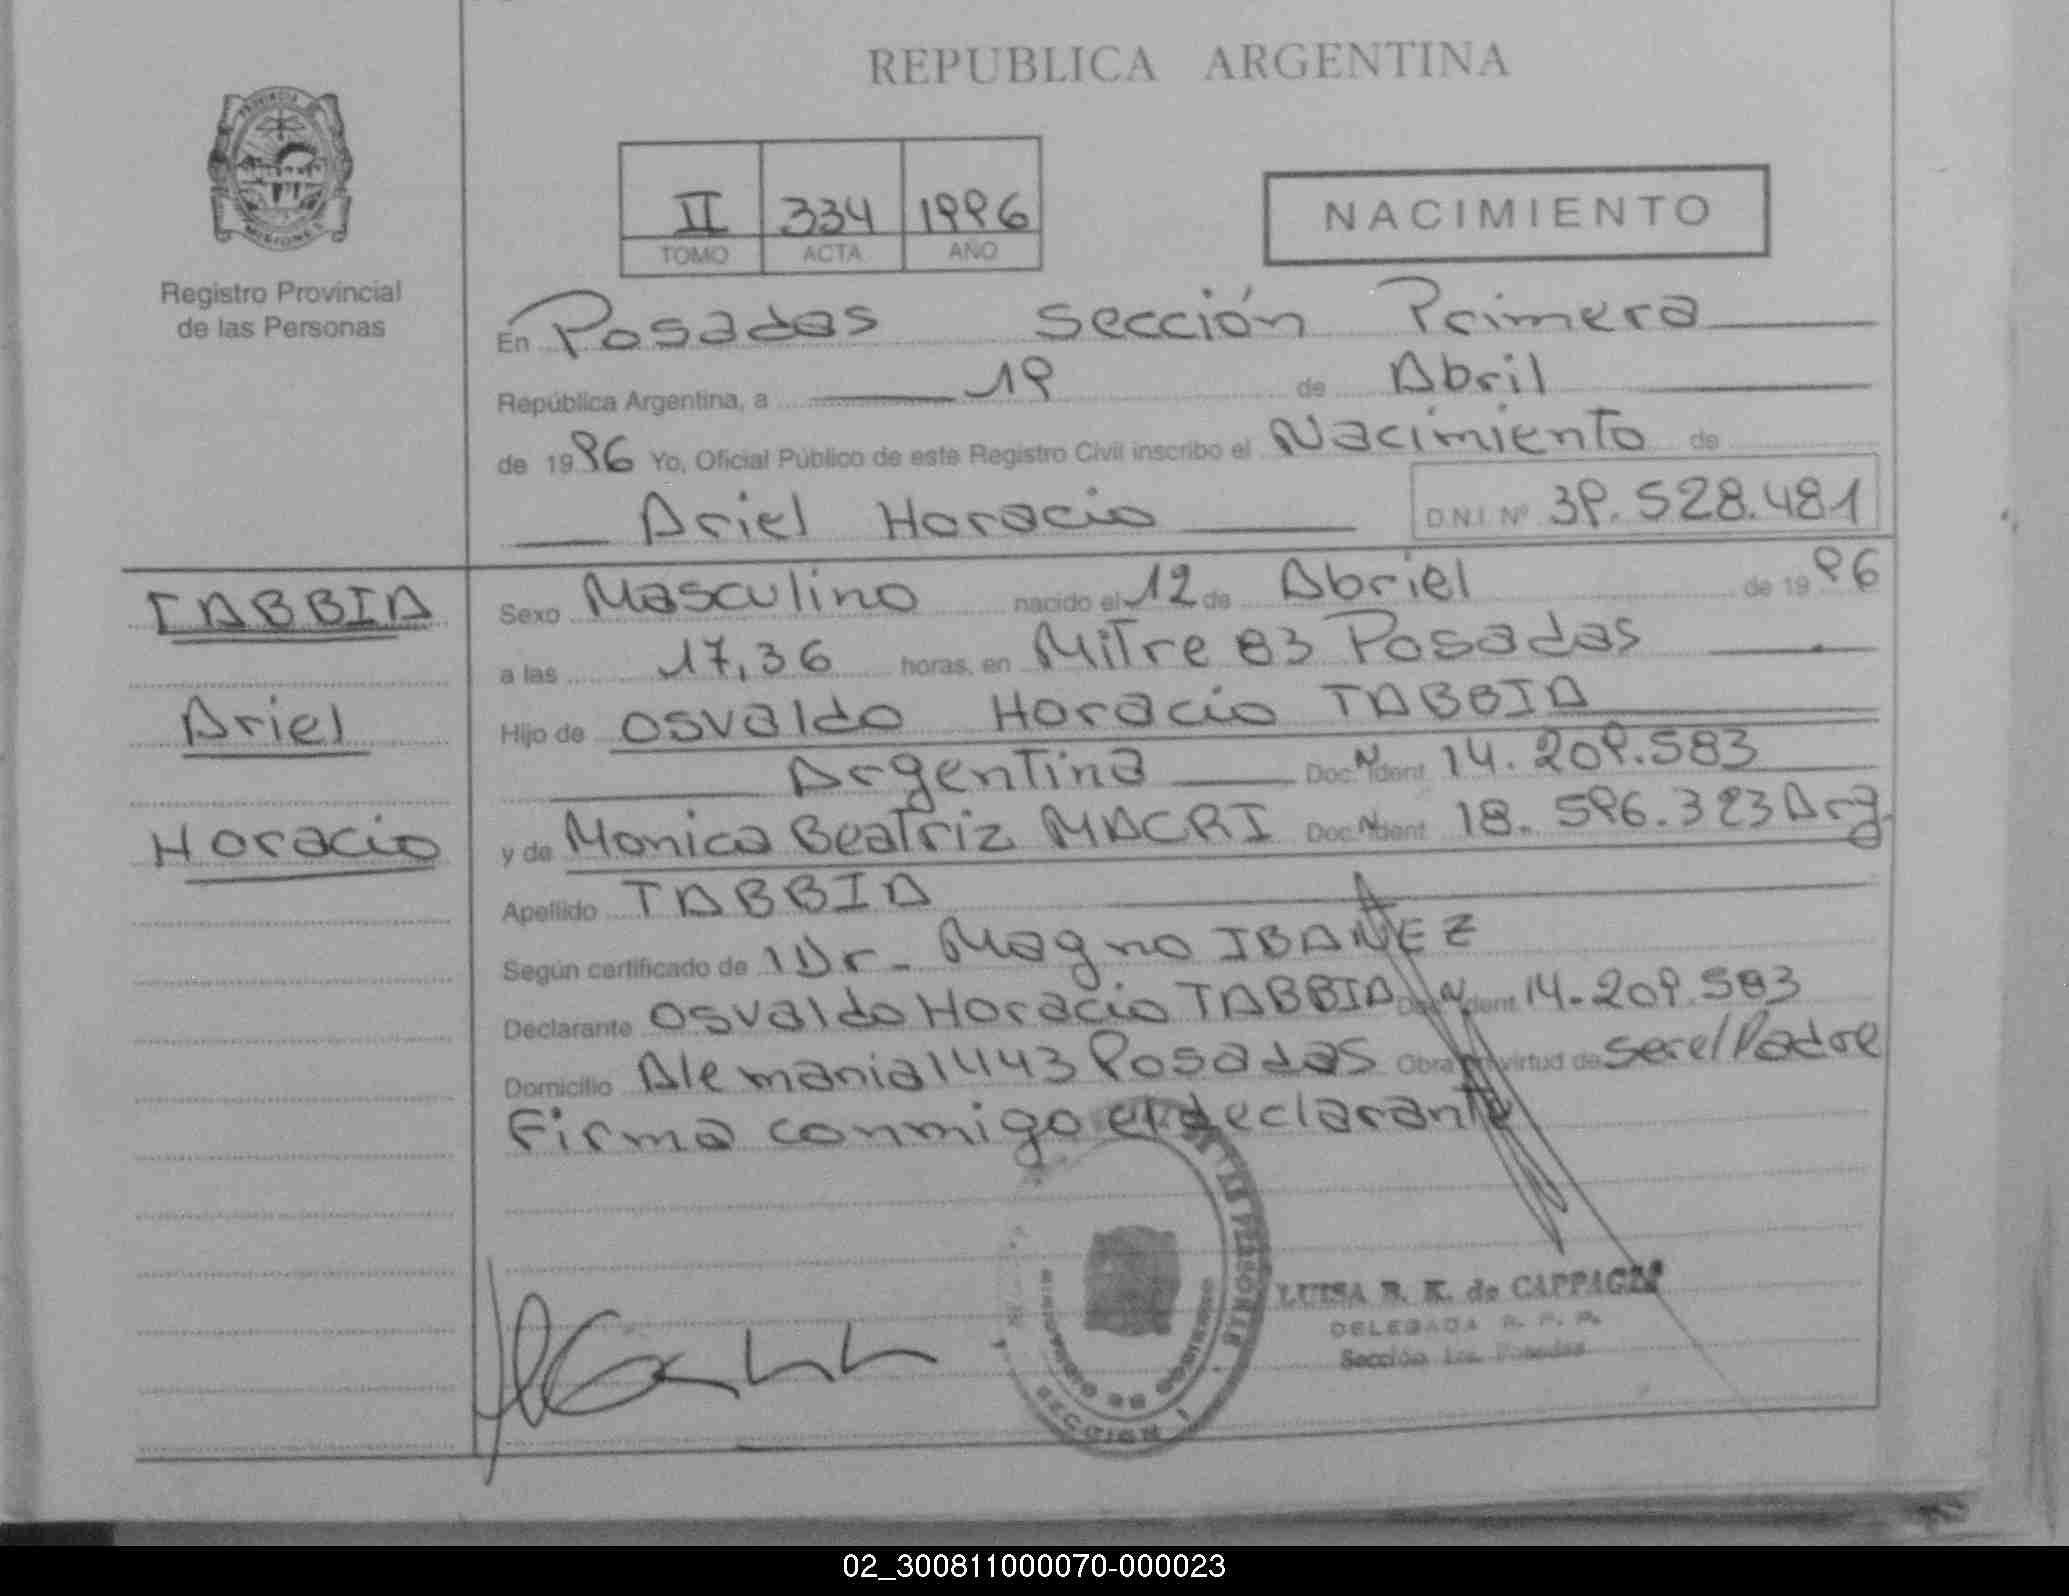 REPUBLICA ARGENTINA
PROVINCIA
MISIONES
Registro Provincial
de las Personas
II 334 1996
TOMO ACTA AÑO
NACIMIENTO
En Posadas Sección Primera
República Argentina, a 19 de Abril
de 1996 Yo, Oficial Público de este Registro Civil inscribo el Nacimiento de
Ariel Horacio D.N.I. Nº 39.528.481
TABBIA
Ariel
Horacio
Sexo Masculino nacido el 12 de Abriel de 1996
a las 17,36 horas, en Mitre 83 Posadas
Hijo de Osvaldo Horacio TABBIA
Argentina Doc. N Ident 14.209.583
y de Monica Beatriz MACRI Doc. N Ident 18.596.323 Arg.
Apellido TABBIA
Según certificado de Dr. Magno IBAÑEZ
Declarante Osvaldo Horacio TABBIA Doc. N Ident 14.209.583
Domicilio Alemania 1443 Posadas Obra en virtud de ser el Padre
Firma conmigo el declarante
LUISA R. K. de CAPPAGES
DELEGADA R. P. P.
Sección 1ra. Posadas
DE LAS PERSONAS
SECCION 1
02_300811000070-000023